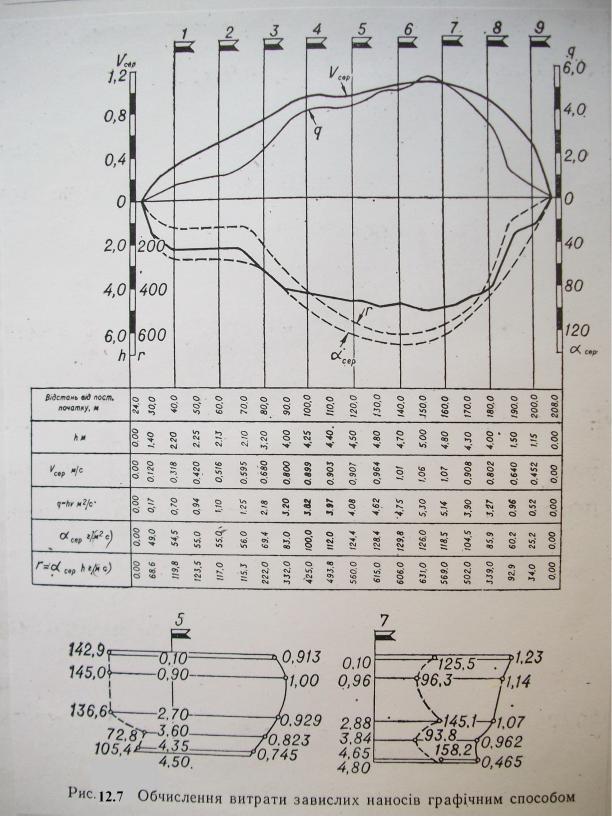 1 2 3 4 5 6 7 8 9
Vсер
q
1,2
6,0
Vсер
0,8
4,0
q
0,4
2,0
0
0
2,0 200
40
4,0 400
80
r
6,0 600
120
αсер
h r
α сер
Відстань від пост. початку, м 24,0 30,0 40,0 50,0 60,0 70,0 80,0 90,0 100,0 110,0 120,0 130,0 140,0 150,0 160,0 170,0 180,0 190,0 200,0 208,0
h м 0.00 1.40 2.20 2.25 2.13 2.10 3,20 4,00 4,25 4,40 4,50 4,80 4,70 5.00 4,80 4,30 4.00 1,50 1,15 0.00
Vсер м/с 0.00 0.120 0,318 0.420 0,516 0.595 0.680 0.800 0.899 0.903 0.907 0,964 1.01 1.06 1.07 0,908 0.802 0.640 0.452 0.00
q=hv м²/с 0.00 0,17 0,70 0,94 1,10 1.25 2.18 3.20 3.82 3.97 4.08 4,62 4,75 5,30 5,14 3,90 3,27 0,96 0.52 0.00
αсер г/(м² с) 0.00 49,0 54,5 55.0 55.0 56.0 69.4 83.0 100,0 112.0 124.4 128.4 129,8 126.0 118.5 104.5 85.9 60.2 25.2 0.00
r=αсер h г/(м с) 0.00 68.6 119,8 123,5 117.0 115.3 222.0 332.0 425.0 493.8 560.0 615.0 606.0 631.0 569.0 502.0 339.0 92.9 34.0 0.00
5
7
142,9 0,10 0,913
145,0 0,90 1,00
136,6 2.70 0.929
72,8 3,60 0,823
105,4 4,35 0,745
4,50
0,10 125,5 1,23
0,96 96,3 1,14
2,88 145,1 1,07
3,84 93,8 0,962
4,65 158,2 0,465
4,80
Рис. 12.7 Обчислення витрати завислих наносів графічним способом